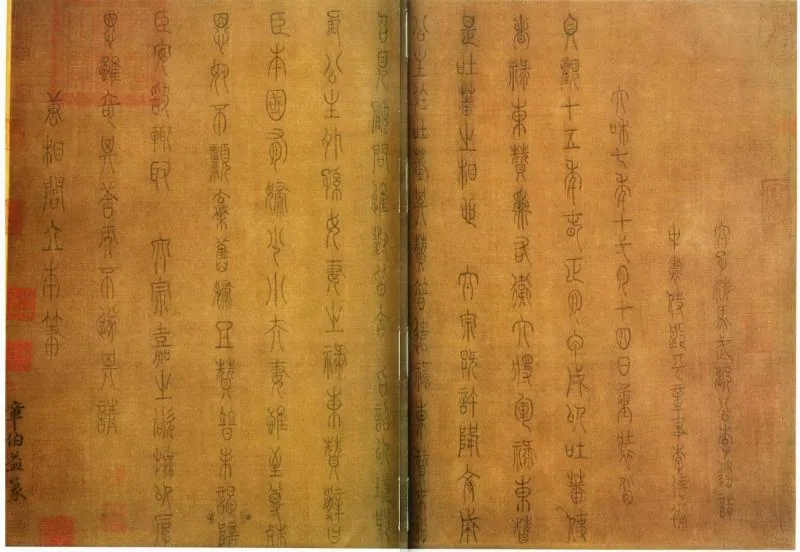 太子洗馬武都公李道誌
中書侍郎平章事李德裕
太和七年十一月十四日重裝背
貞觀十五年春正月甲戌以吐蕃使
者祿東贊為右衛大將軍祿東贊
是吐蕃之相也 太宗既許降文成
公主於吐蕃其贊普遣祿東贊來
召見顧問進對皆合旨 詔以琅
長公主外孫女妻之祿東贊辭曰
臣本國有婦少小夫妻雖至尊殊
恩奴不願棄舊婦且贊普未謁
臣安敢輒取 太宗嘉之欲撫以厚
恩雖奇其答而不遂其請
唐相閻立本筆
章伯益篆